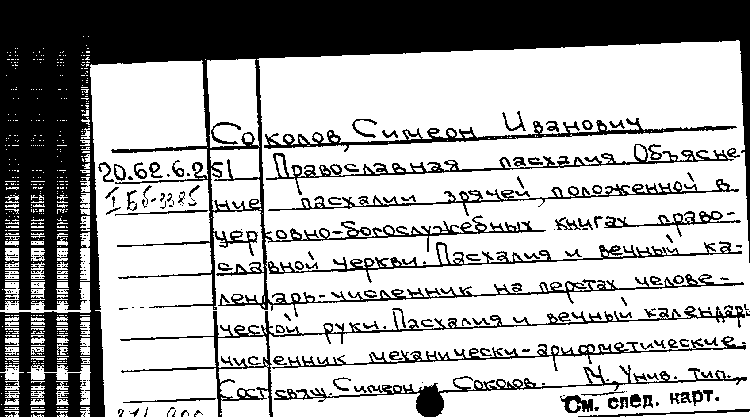 Соколов, Симеон Иванович
20.62.6.251 Православная пасхалия. Объясне-
I Бб-3385 ние пасхалии зрячей, положенной в
церковно-богослужебных книгах право-
славной церкви. Пасхалия и вечный ка-
лендарь-численник на перстах челове-
ческой руки. Пасхалия и вечный календарь-
численник механически-арифметические.
Сост. свящ. Симеон И. Соколов. М., Унив. тип.,
См. след. карт.